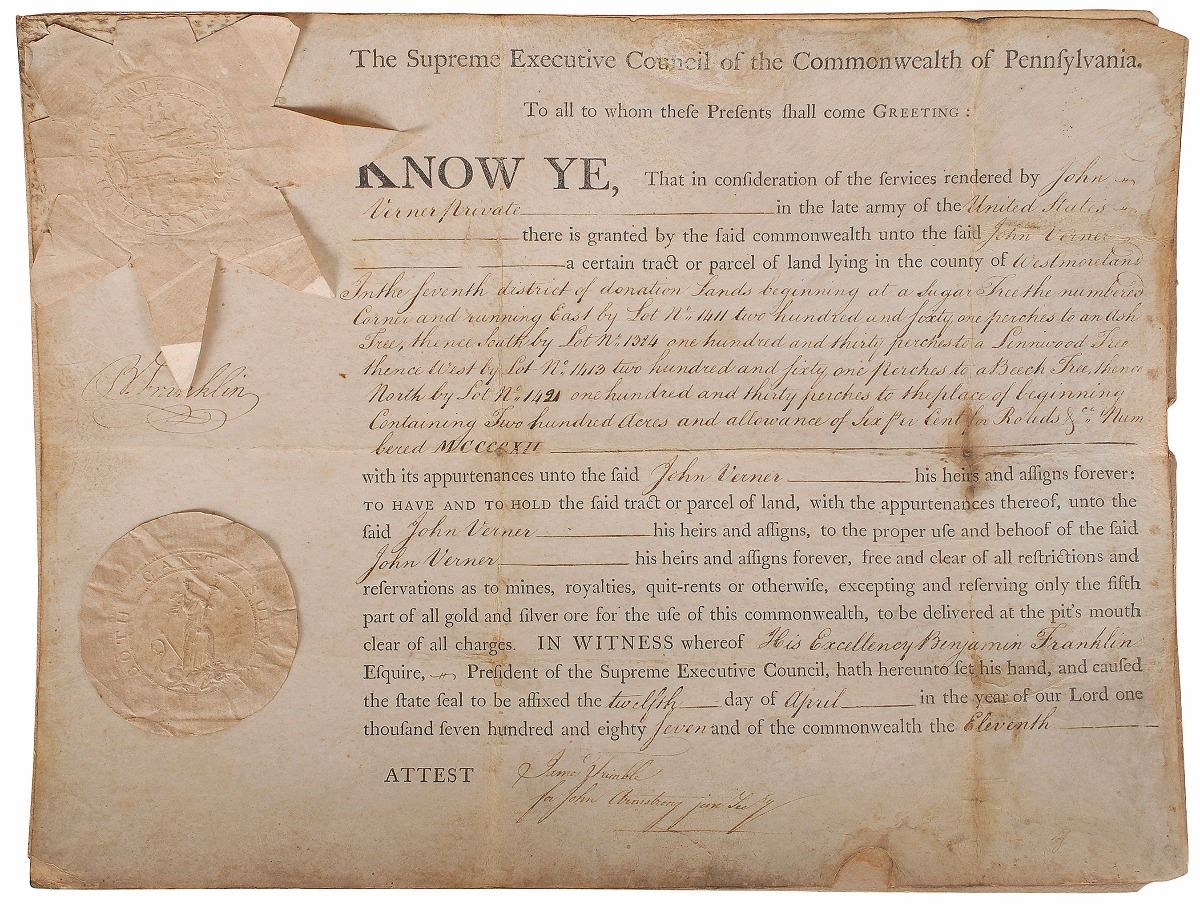 The Supreme Executive Council of the Commonwealth of Pennſylvania.
To all to whom theſe Preſents ſhall come GREETING :
KNOW YE, That in conſideration of the ſervices rendered by John
Verner Private in the late army of the United States
there is granted by the ſaid commonwealth unto the ſaid John Verner
a certain tract or parcel of land lying in the county of Westmoreland
In the Seventh district of donation Lands beginning at a Sugar Tree the numbered
Corner and running East by Lot No. 1411 two hundred and sixty one perches to an Ash
Tree, thence South by Lot No. 1384 one hundred and thirty perches to a Linnwood Tree
thence West by Lot No. 1413 two hundred and sixty one perches to a Beech Tree, thence
North by Lot No. 1421 one hundred and thirty perches to the place of beginning
Containing Two hundred Acres and allowance of Six pr Cent for Roads &ca. Num
bered MCCCCXII
with its appurtenances unto the ſaid John Verner his heirs and aſſigns forever:
TO HAVE AND TO HOLD the ſaid tract or parcel of land, with the appurtenances thereof, unto the
ſaid John Verner his heirs and aſſigns, to the proper uſe and behoof of the ſaid
John Verner his heirs and aſſigns forever, free and clear of all reſtrictions and
reſervations as to mines, royalties, quit-rents or otherwiſe, excepting and reſerving only the fifth
part of all gold and ſilver ore for the uſe of this commonwealth, to be delivered at the pit's mouth
clear of all charges. IN WITNESS whereof His Excellency Benjamin Franklin
Eſquire, Preſident of the Supreme Executive Council, hath hereunto ſet his hand, and cauſed
the ſtate ſeal to be affixed the twelfth day of April in the year of our Lord one
thouſand ſeven hundred and eighty Seven and of the commonwealth the Eleventh
ATTEST Jamₛ Trimble
for John Armstrong junr Secy
B Franklin
BOTH CAN SURV